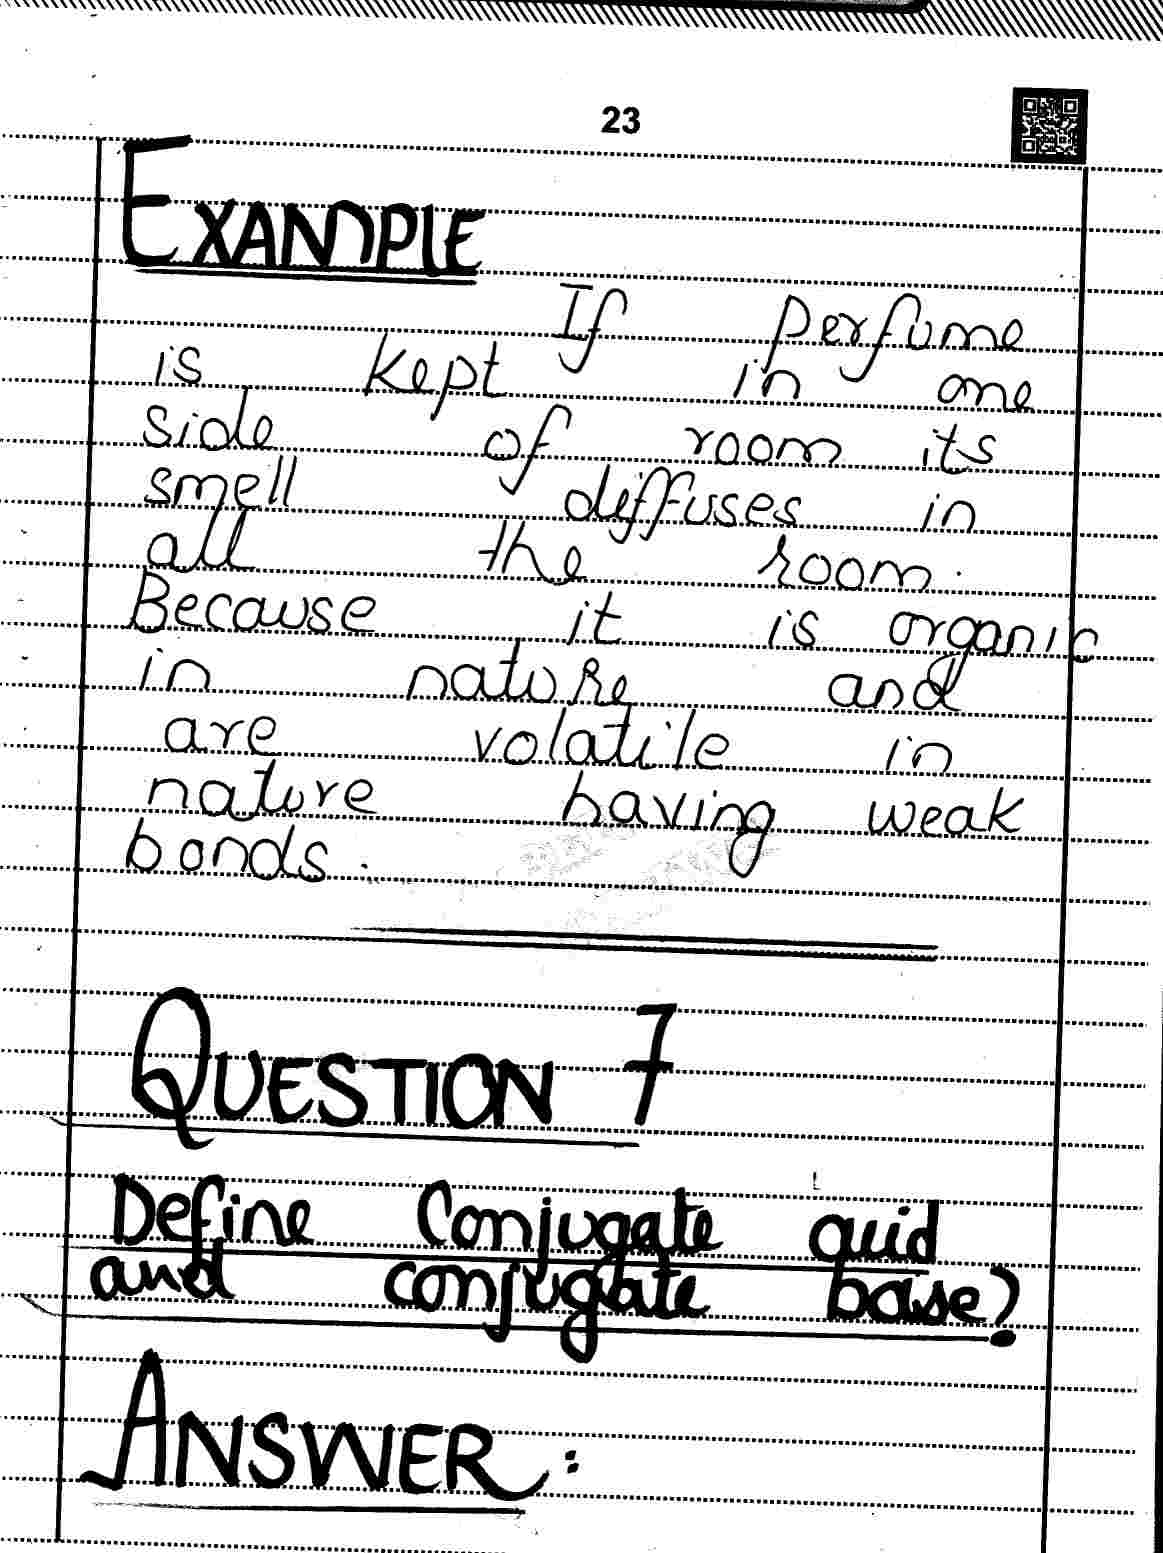 23
EXAMPLE
If perfume
is kept in one
side of room its
smell diffuses in
all the room.
Because it is organic
in nature and
are volatile in
nature having weak
bonds.
QUESTION 7
Define Conjugate acid
and conjugate base?
ANSWER: